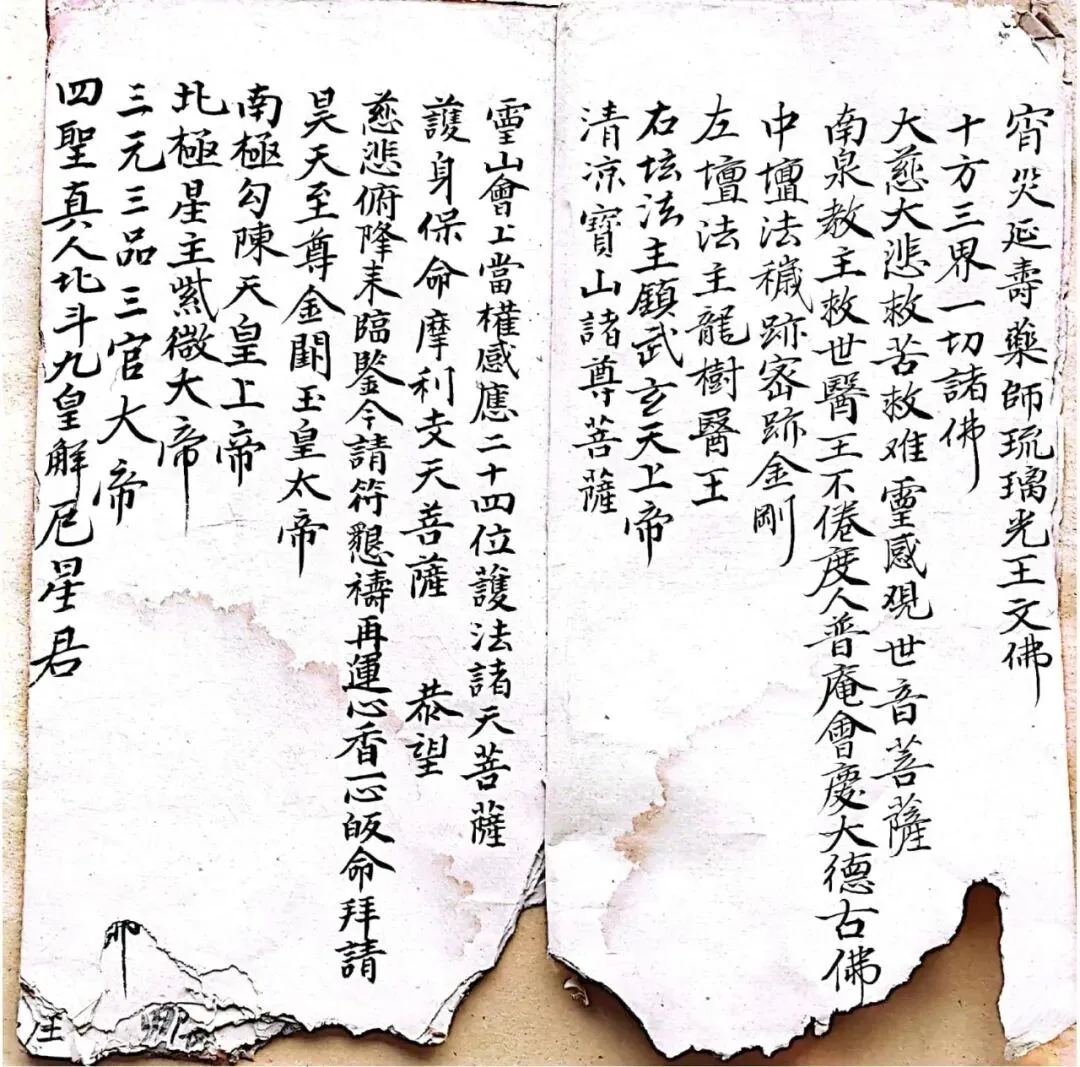 宵災延壽藥師琉璃光王文佛
十方三界一切諸佛
大慈大悲救苦救难靈感观世音菩薩
南泉教主救世醫王不倦度人普庵會慶大德古佛
中壇法穢跡密跡金剛
左壇法主龍樹醫王
右坛法主鎮武玄天上帝
清凉寶山諸尊菩薩
靈山會上當權感應二十四位護法諸天菩薩
護身保命摩利支天菩薩 恭望
慈悲俯降来臨鑒今請符懇禱再運心香一心皈命拜請
昊天至尊金闕玉皇太帝
南極勾陳天皇上帝
北極星主紫微大帝
三元三品三官大帝
四聖真人北斗九皇解厄星君